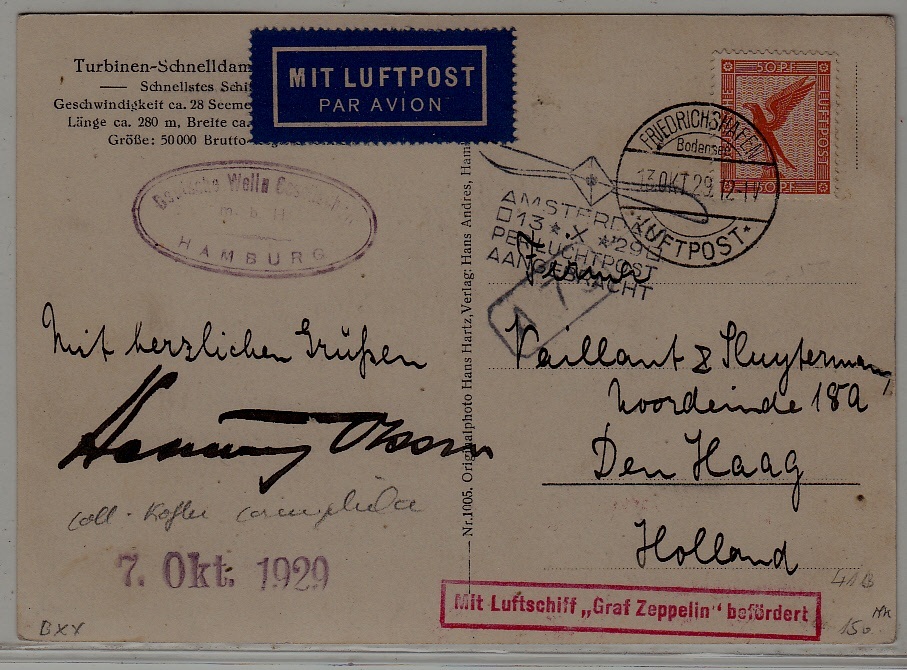 Turbinen-Schnelldam
— Schnellstes Schi
Geschwindigkeit ca. 28 Seeme
Länge ca. 280 m, Breite ca.
Größe: 50000 Brutto-
MIT LUFTPOST
PAR AVION
50 PF
LUFTPOST
50 PF.
FRIEDRICHSHAFEN
Bodensee
13.OKT.29. 12-1V
*LUFTPOST*
AMSTERDAM
13 ★.X ★29
PER LUCHTPOST
AANGEBRACHT
Deutsche Wella Gesellschaft
m.b.H.
HAMBURG
Mit herzlichen Grüßen
7. Okt. 1929
Nr.1005. Originalphoto Hans Hartz, Verlag: Hans Andres, Ham
Firma
Vaillant & Sluyterman,
Noordeinde 18a
Den Haag
Holland
Mit Luftschiff „Graf Zeppelin" befördert
BXX
41B
150